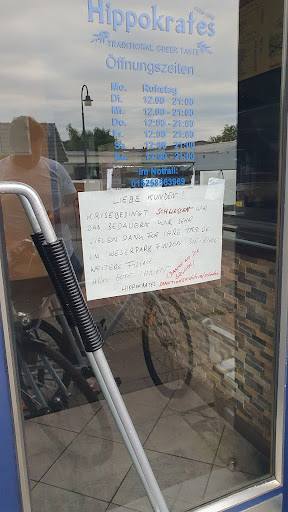 Hippokrates
TRADITIONAL GREEK TASTE
Öffnungszeiten
Mo. Ruhetag
Di. 12.00 - 21:00
Mi. 12.00 - 21:00
Do. 12.00 - 21:00
Fr. 12.00 - 21:00
Sa. 12.00 - 21:00
12.00 - 21:00
Im Notfall:
LIEBE KUNDEN
KRISEBEDINGT SCHLIESSEN WIR
DAS BEDAUERN WIR SEHR
VIELEN DANK FÜR IHRE TREUE
IM WESERPARK FINDEN SIE EINE
WEITERE FILIALE
ALLES GUTE IHNEN
HIPPOKRATES